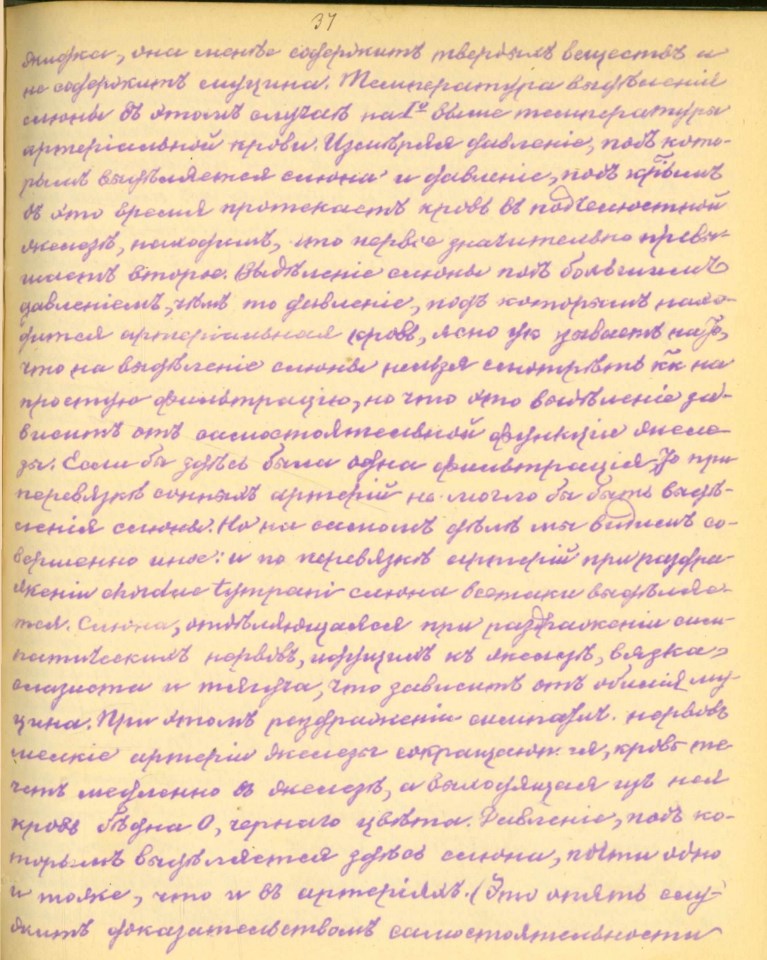 37
жидка, она менѣе содержитъ твердыхъ веществъ и
не содержитъ муцина. Температура выдѣленія
слюны въ этомъ случаѣ на 1° выше температуры
артеріальной крови. Измѣряя давленіе, подъ кото-
рымъ выдѣляется слюна и давленіе, подъ крымъ
въ это время протекаетъ кровь въ подчелюстной
железѣ, находимъ, что первое значительно превы-
шаетъ второе. Выдѣленіе слюны подъ большимъ
давленіемъ, чѣмъ то давленіе, подъ которымъ нахо-
дится артеріальная кровь, ясно указываетъ на то,
что на выдѣленіе слюны нельзя смотрѣть кк на
простую фильтрацію, но что это выдѣленіе за-
виситъ отъ самостоятельной функціи желе-
зы. Если бы здѣсь была одна фильтрація, то при
перевязкѣ сонныхъ артерій не могло бы быть выдѣ-
ленія слюны. Но на самомъ дѣлѣ мы видимъ со-
вершенно иное: и по перевязкѣ артерій при раздра-
женіи chordae tympani слюна всетаки выдѣляе-
тся. Слюна, отдѣляющаяся при раздраженіи сим-
патическихъ нервовъ, идущихъ къ железѣ, вязка,
слизиста и тягуча, что зависитъ отъ обилія му-
цина. При этомъ раздраженіи симпатич. нервовъ
мелкія артеріи железы сокращаются, кровь те-
четъ медленно въ железѣ, а выходящая изъ нея
кровь бѣдна О, чернаго цвѣта. Давленіе, подъ ко-
торымъ выдѣляется здѣсь слюна, почти одно
и тоже, что и въ артеріяхъ. (Это опять слу-
житъ доказательствомъ самостоятельности